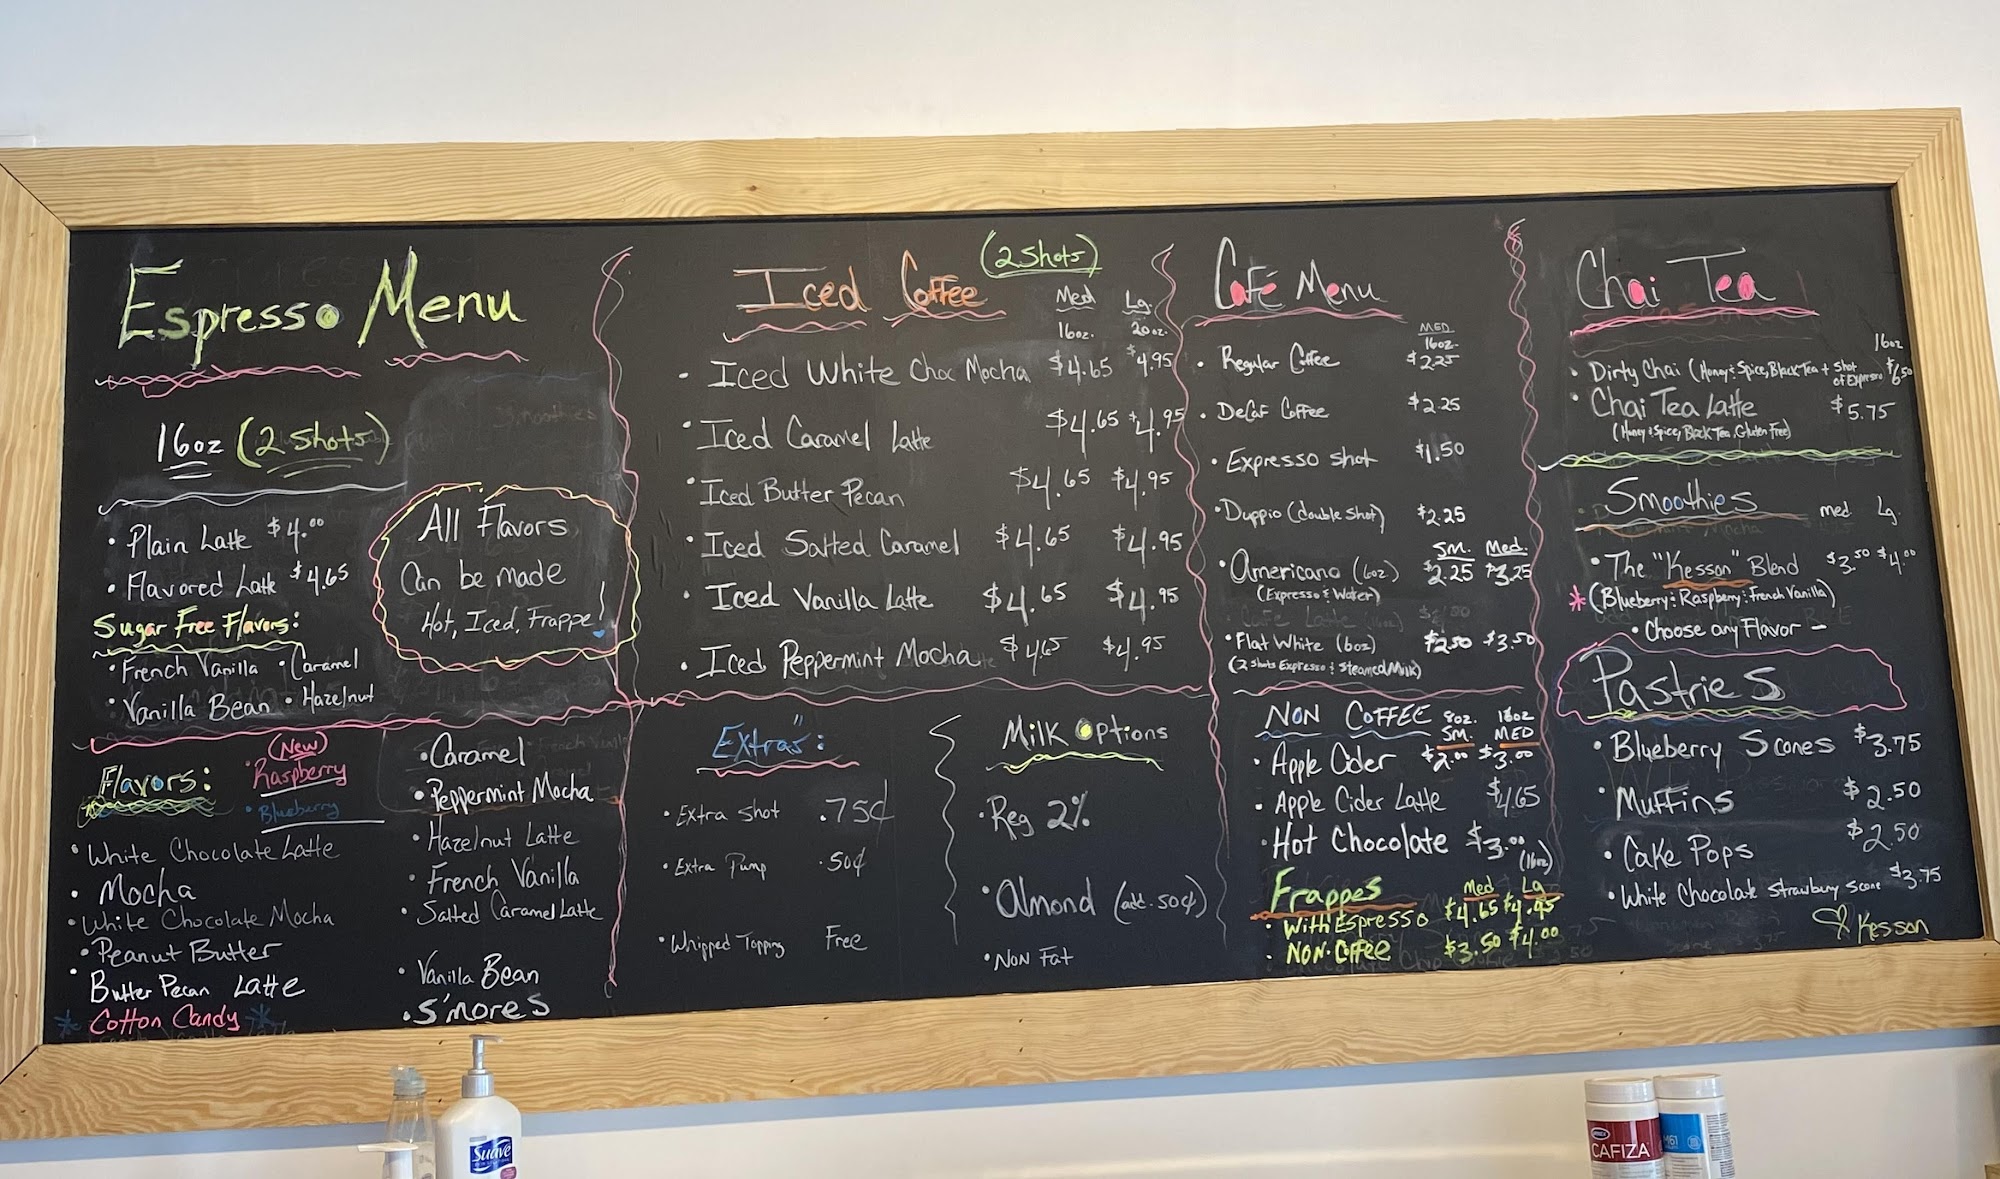 Espresso Menu
16oz (2 Shots)
• Plain Latte $4.00
• Flavored Latte $4.65
Sugar Free Flavors:
• French Vanilla • Caramel
• Vanilla Bean • Hazelnut
All Flavors
Can be made
Hot, Iced, Frappe!
Flavors:
(New)
• Raspberry
• Blueberry
• White Chocolate Latte
• Mocha
• White Chocolate Mocha
• Peanut Butter
• Butter Pecan Latte
* Cotton Candy *
• Caramel
• Peppermint Mocha
• Hazelnut Latte
• French Vanilla
• Salted Caramel Latte
• Vanilla Bean
• S'mores
Iced Coffee (2 Shots)
Med Lg.
16oz. 20oz.
• Iced White Choc Mocha $4.65 $4.95
• Iced Caramel Latte $4.65 $4.95
• Iced Butter Pecan $4.65 $4.95
• Iced Salted Caramel $4.65 $4.95
• Iced Vanilla Latte $4.65 $4.95
• Iced Peppermint Mocha $4.65 $4.95
Extras":
• Extra Shot .75¢
• Extra Pump .50¢
• Whipped Topping Free
Milk Options
• Reg 2%
• Almond (add .50¢)
• Non Fat
Café Menu
MED
16oz.
• Regular Coffee $2.25
• Decaf Coffee $2.25
• Expresso Shot $1.50
• Duppio (double shot) $2.25
Sm. Med.
• Americano (6oz) $2.25 $3.25
(Expresso & Water)
• Flat White (6oz) $2.50 $3.50
(2 shots Expresso & Steamed Milk)
NON COFFEE 8oz. 16oz
SM. MED
• Apple Cider $2.00 $3.00
• Apple Cider Latte $4.65
• Hot Chocolate $3.00
(16oz)
Frappes Med Lg
• With Espresso $4.65 $4.95
• NON-Coffee $3.50 $4.00
Chai Tea
16oz
• Dirty Chai (Honey & Spice, Black Tea + Shot of Expresso $6.50
• Chai Tea Latte $5.75
(Honey & Spice, Black Tea, Gluten Free)
Smoothies med Lg.
• The "Kesson" Blend $3.50 $4.00
* (Blueberry & Raspberry & French Vanilla)
• Choose any Flavor –
Pastries
• Blueberry Scones $3.75
• Muffins $2.50
• Cake Pops $2.50
• White Chocolate Strawbury Scone $3.75
♡ Kesson
Suave
CAFIZA
M61